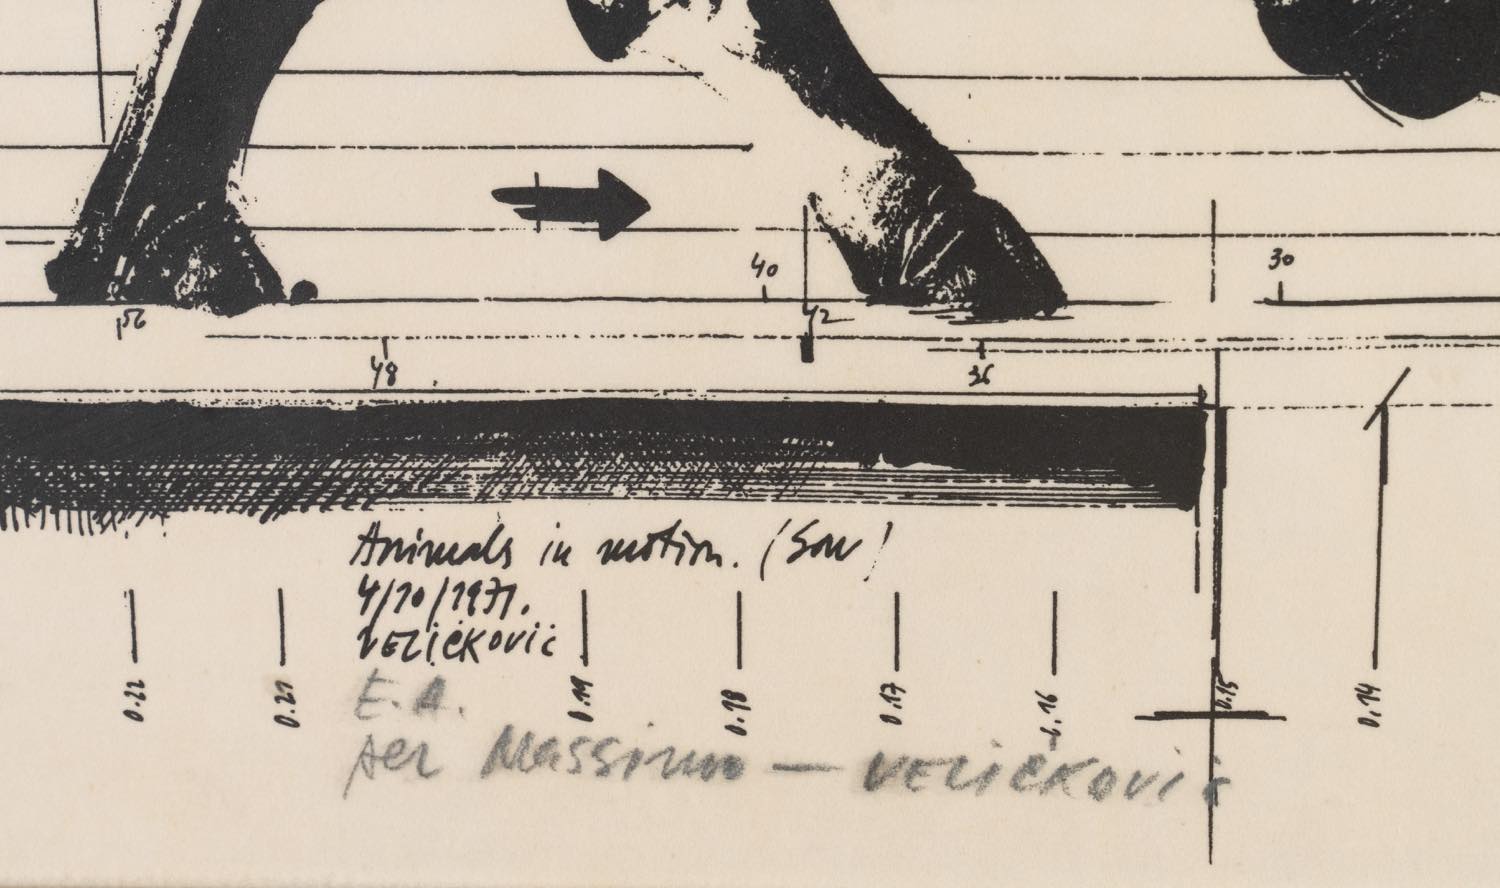 40
30
56
42
48
36
Animals in motion. (Sow)
4/10/1971.
VELIČKOVIĆ
0.22 0.21 0.19 0.18 0.17 0.16 0.15 0.14
E.A.
per Massimo — VELIČKOVIĆ